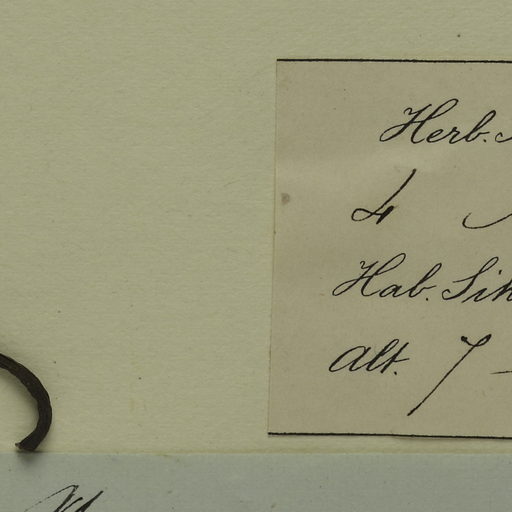 Herb.
4
Hab. Sik
Alt. 7 –